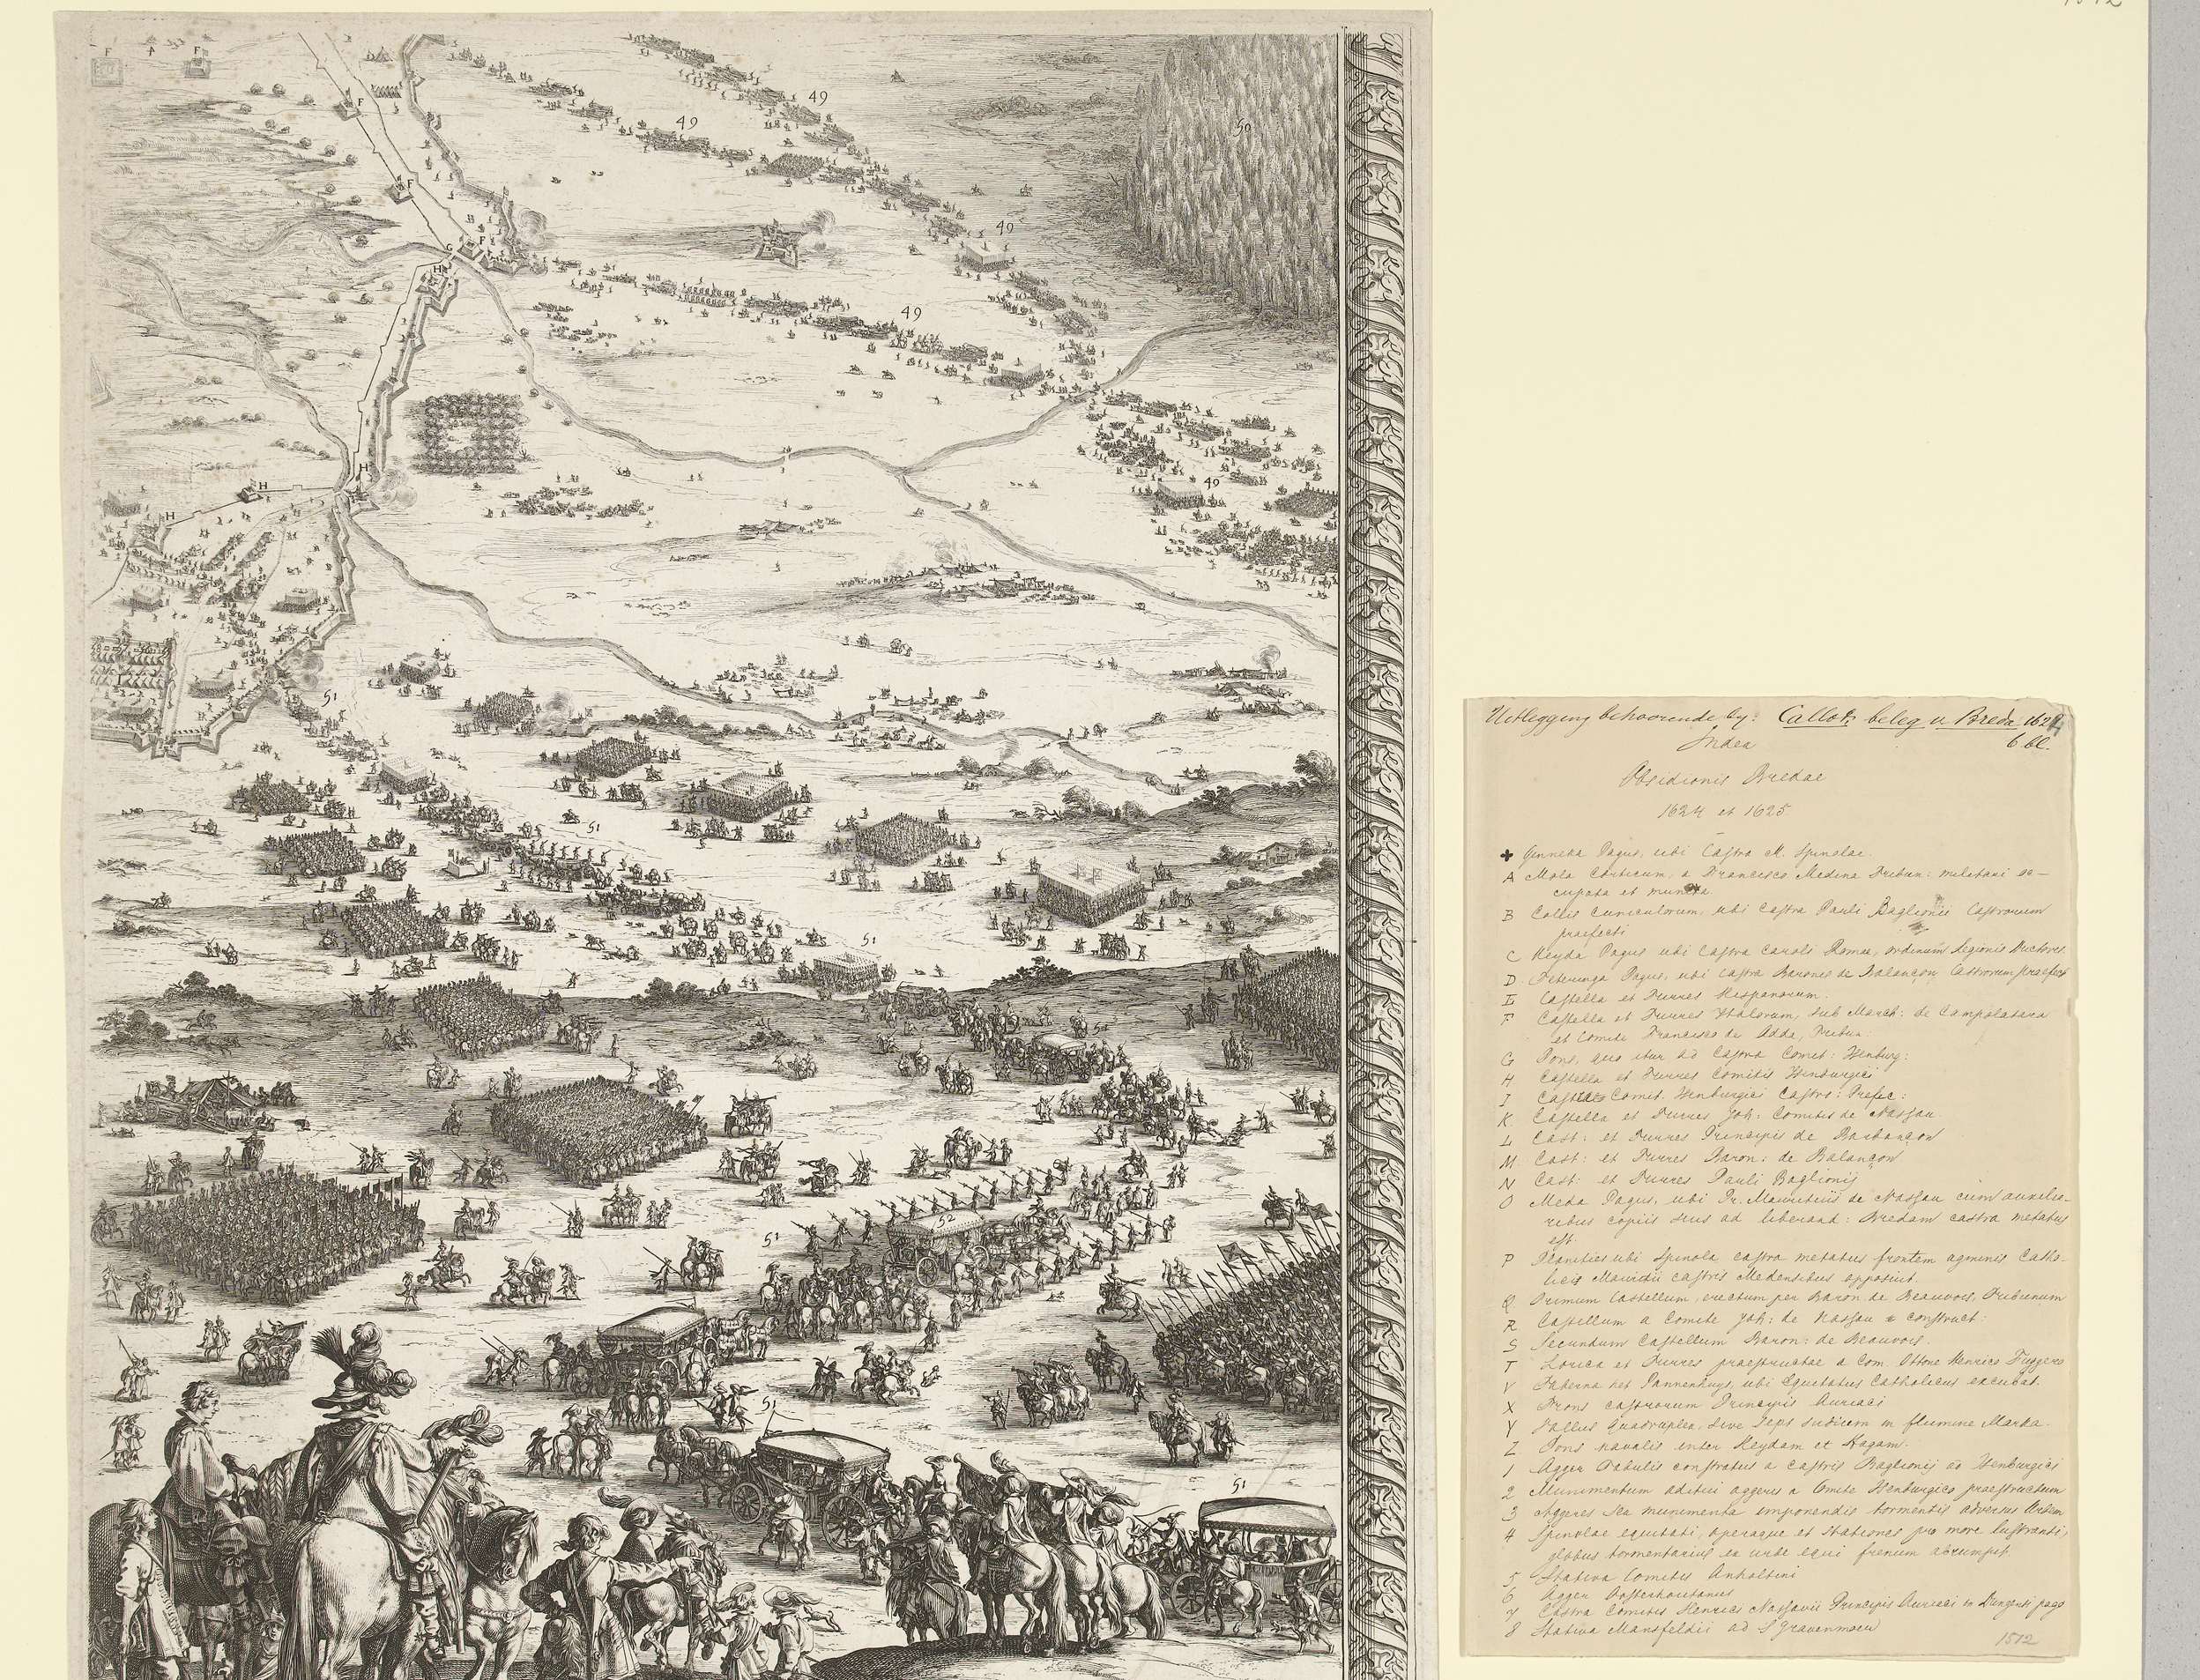 F A F
F
49
49
50
F
49
F
G
H
49
H
49
H
H
51
51
51
51
52
51
51
51
Uitlegging behoorende by: Callots beleg v. Breda 1624
6 bl.
Index
Obsidionis Bredae
1624 et 1625.
+ Ginneka Pagus, ubi Castra M. Spinolae.
A Mola Corticum, a Francisco Medina Tribun: militari oc-
cupata et munita
B Collis Cuniculorum, ubi Castra Pauli Baglionii Castrorum
praefecti
C Heyda Pagus ubi Castra Caroli Roma, ordinum Legionis Ductores.
D Teteringa Pagus, ubi Castra Baronis de Balançon Castrorum praefect
E Castella et Turres Hispanorum.
F Castella et Turres Italorum, sub March: de Campolatara
et Comite Francisco de Adda, Tribun
G Pons, quo itur ad Castra Comit: Isenburg:
H Castella et Turres Comitis Isenburgici
I Castra Comit. Isenburgici Castro: Prefec:
K Castella et Turres Joh: Comitis de Nassau
L Cast: et Turres Principis de Barbançon
M Cast: et Turres Baron: de Balançon
N Cast: et Turres Pauli Baglionij
O Meda Pagus, ubi Pr. Mauritius de Nassau cum auxilia-
ribus copiis suis ad liberand: Bredam castra metatus
est.
P Planities ubi Spinola castra metatus frontem agminis Catho-
licis Mauritii castris Medensibus opposuit.
Q Primum Castellum, erectum per Baron. de Beauvois, Tribunum
R Castellum a Comite Joh: de Nassau construct:
S Secundum Castellum Baron: de Beauvois.
T Lorica et Turres praestructae a Com. Ottone Henrico Fuggero
V Taberna het Pannenhuys, ubi Equitatus Catholicus excubat.
X Frons castrorum Principis Auriaci
Y Vallus Quadruplex, sive Seps sudicum in flumine Marka.
Z Pons navalis inter Heydam et Hagam.
1 Agger Tabulis constratus a Castris Baglionij ad Isenburgici
2 Munimentum aditui aggeris a Comite Isenburgico praestructum
3 Aggeres seu munimenta imponendis tormentis adversus Urbem
4 Spinolae equitati, operaque et stationes pro more lustranti,
globus tormentarius ex urbe equi frenum abrumpit.
5 Stativa Comitis Anholtini
6 Agger Oosterhoutanus
7 Castra Comitis Henrici Nassavii Principis Auriaci in Dungensi pago
8 Stativa Mansfeldii ad S'Gravenmoer
1512